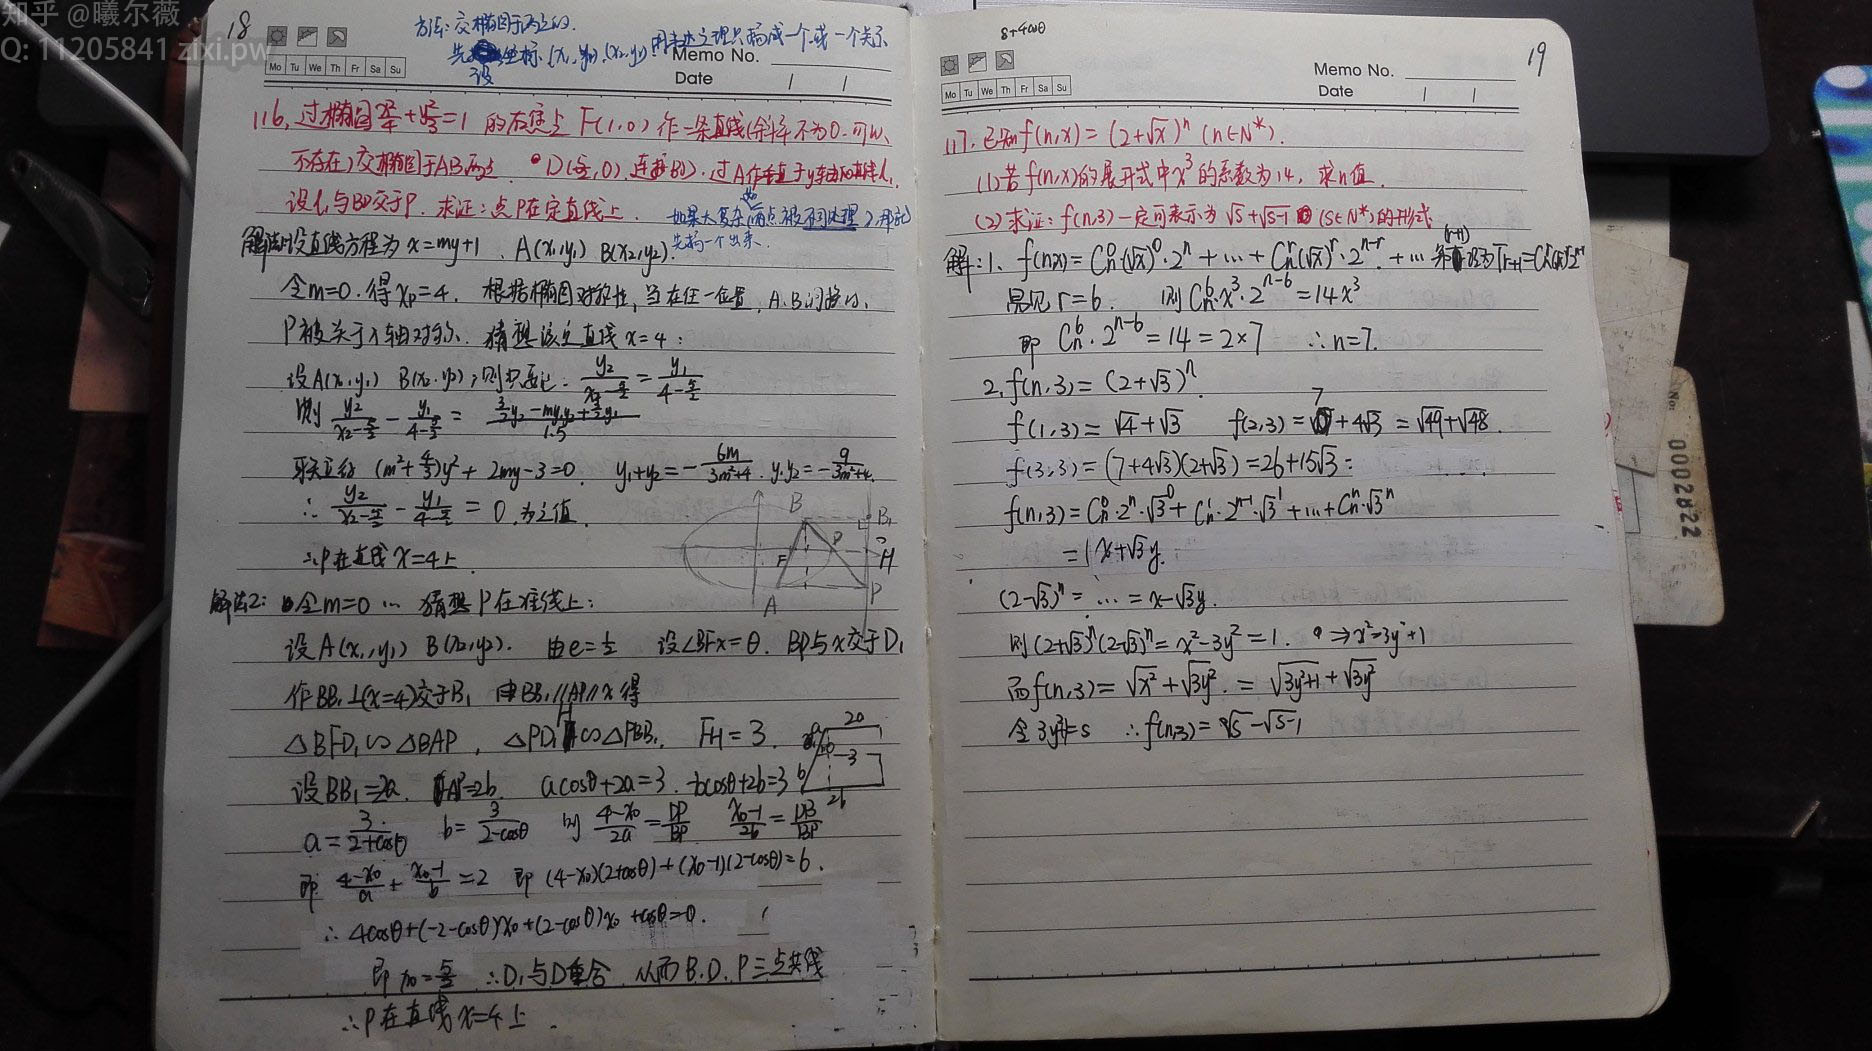 知乎 @曦尔薇
Q: 11205841 zixi.pw
18
方法: 交椭圆于两点的.
先设坐标 (x₁, y₁) (x₂, y₂). 用韦达定理只构成一个或一个关系
Mo Tu We Th Fr Sa Su
Memo No.
Date
116. 过椭圆 x²/4 + y²/3 = 1 的右焦点 F(1,0) 作一条直线(斜率不为0. 可以
不存在)交椭圆于AB两点. D(5/2, 0). 连接BD. 过A作垂直于y轴的直线l₁.
设l₁与BD交于P. 求证: 点P在定直线上.
如果太复杂(两点被不同处理), 那就
先搞一个出来.
解法1: 设直线方程为 x=my+1. A(x₁,y₁) B(x₂,y₂).
令m=0. 得 xₚ=4. 根据椭圆对称性, 当在任一位置, A.B互换时,
P被关于x轴对称. 猜想该定直线 x=4:
设A(x₁,y₁) B(x₂,y₂), 则只要证: y₂/(x₂-5/2) = y₁/(4-5/2)
则 y₂/(x₂-5/2) - y₁/(4-5/2) = (3/2 y₂ - my₁y₂ + 3/2 y₁)/1.5
联立得 (m²+4/3)y² + 2my-3=0. y₁+y₂ = -6m/(3m²+4). y₁y₂ = -9/(3m²+4).
∴ y₂/(x₂-5/2) - y₁/(4-5/2) = 0. 为定值.
∴P在直线 x=4上.
B B₁ D H F A P
解法2: 令m=0 … 猜想 P在准线上:
设A(x₁,y₁) B(x₂,y₂). 由e=1/2 设∠BFx=θ. BP与x交于D₁
作BB₁⊥(x=4)交于B₁ 由BB₁//AP//x 得
△BFD₁∽△BAP, △PD₁H∽△PBB₁. FH=3.
设BB₁=2a. AP=2b. acosθ+2a=3. -bcosθ+2b=3
2a 3 b 2b
a = 3/(2+cosθ) b = 3/(2-cosθ) 则 (4-x₀)/2a = DP/BP (x₀-1)/2b = DB/BP
即 (4-x₀)/a + (x₀-1)/b = 2 即 (4-x₀)(2+cosθ)+(x₀-1)(2-cosθ)=6.
∴ 4cosθ+(-2-cosθ)x₀+(2-cosθ)x₀+cosθ=0.
即 x₀=5/2 ∴D₁与D重合 从而 B.D.P三点共线
∴P在直线 x=4上.
8+4cosθ
19
Mo Tu We Th Fr Sa Su
Memo No.
Date
117. 已知f(n,x) = (2+√x)ⁿ (n∈N*).
(1)若f(n,x)的展开式中x³的系数为14, 求n值.
(2)求证: f(n,3)一定可表示为 √s+√s-1 (s∈N*)的形式
解: 1. f(n,x) = Cₙ⁰(√x)⁰·2ⁿ + … + Cₙʳ(√x)ʳ·2ⁿ⁻ʳ + … 第(r+1)项为Tᵣ₊₁=Cₙʳ(√x)ʳ2ⁿ⁻ʳ
易见 r=6. 则 Cₙ⁶·x³·2ⁿ⁻⁶ = 14x³
即 Cₙ⁶·2ⁿ⁻⁶ = 14 = 2×7 ∴n=7.
2. f(n,3) = (2+√3)ⁿ
f(1,3) = √4+√3 f(2,3) = 7+4√3 = √49+√48.
f(3,3) = (7+4√3)(2+√3) = 26+15√3:
f(n,3) = Cₙ⁰·2ⁿ·√3⁰ + Cₙ¹·2ⁿ⁻¹·√3¹ + … + Cₙⁿ·√3ⁿ
= x+√3y.
(2-√3)ⁿ = … = x-√3y.
则 (2+√3)ⁿ(2-√3)ⁿ = x²-3y² = 1. ⇒x²=3y²+1
而f(n,3) = √x²+√3y². = √3y²+1+√3y²
令3y²+1=s ∴f(n,3) = √s-√s-1
No:
0002822